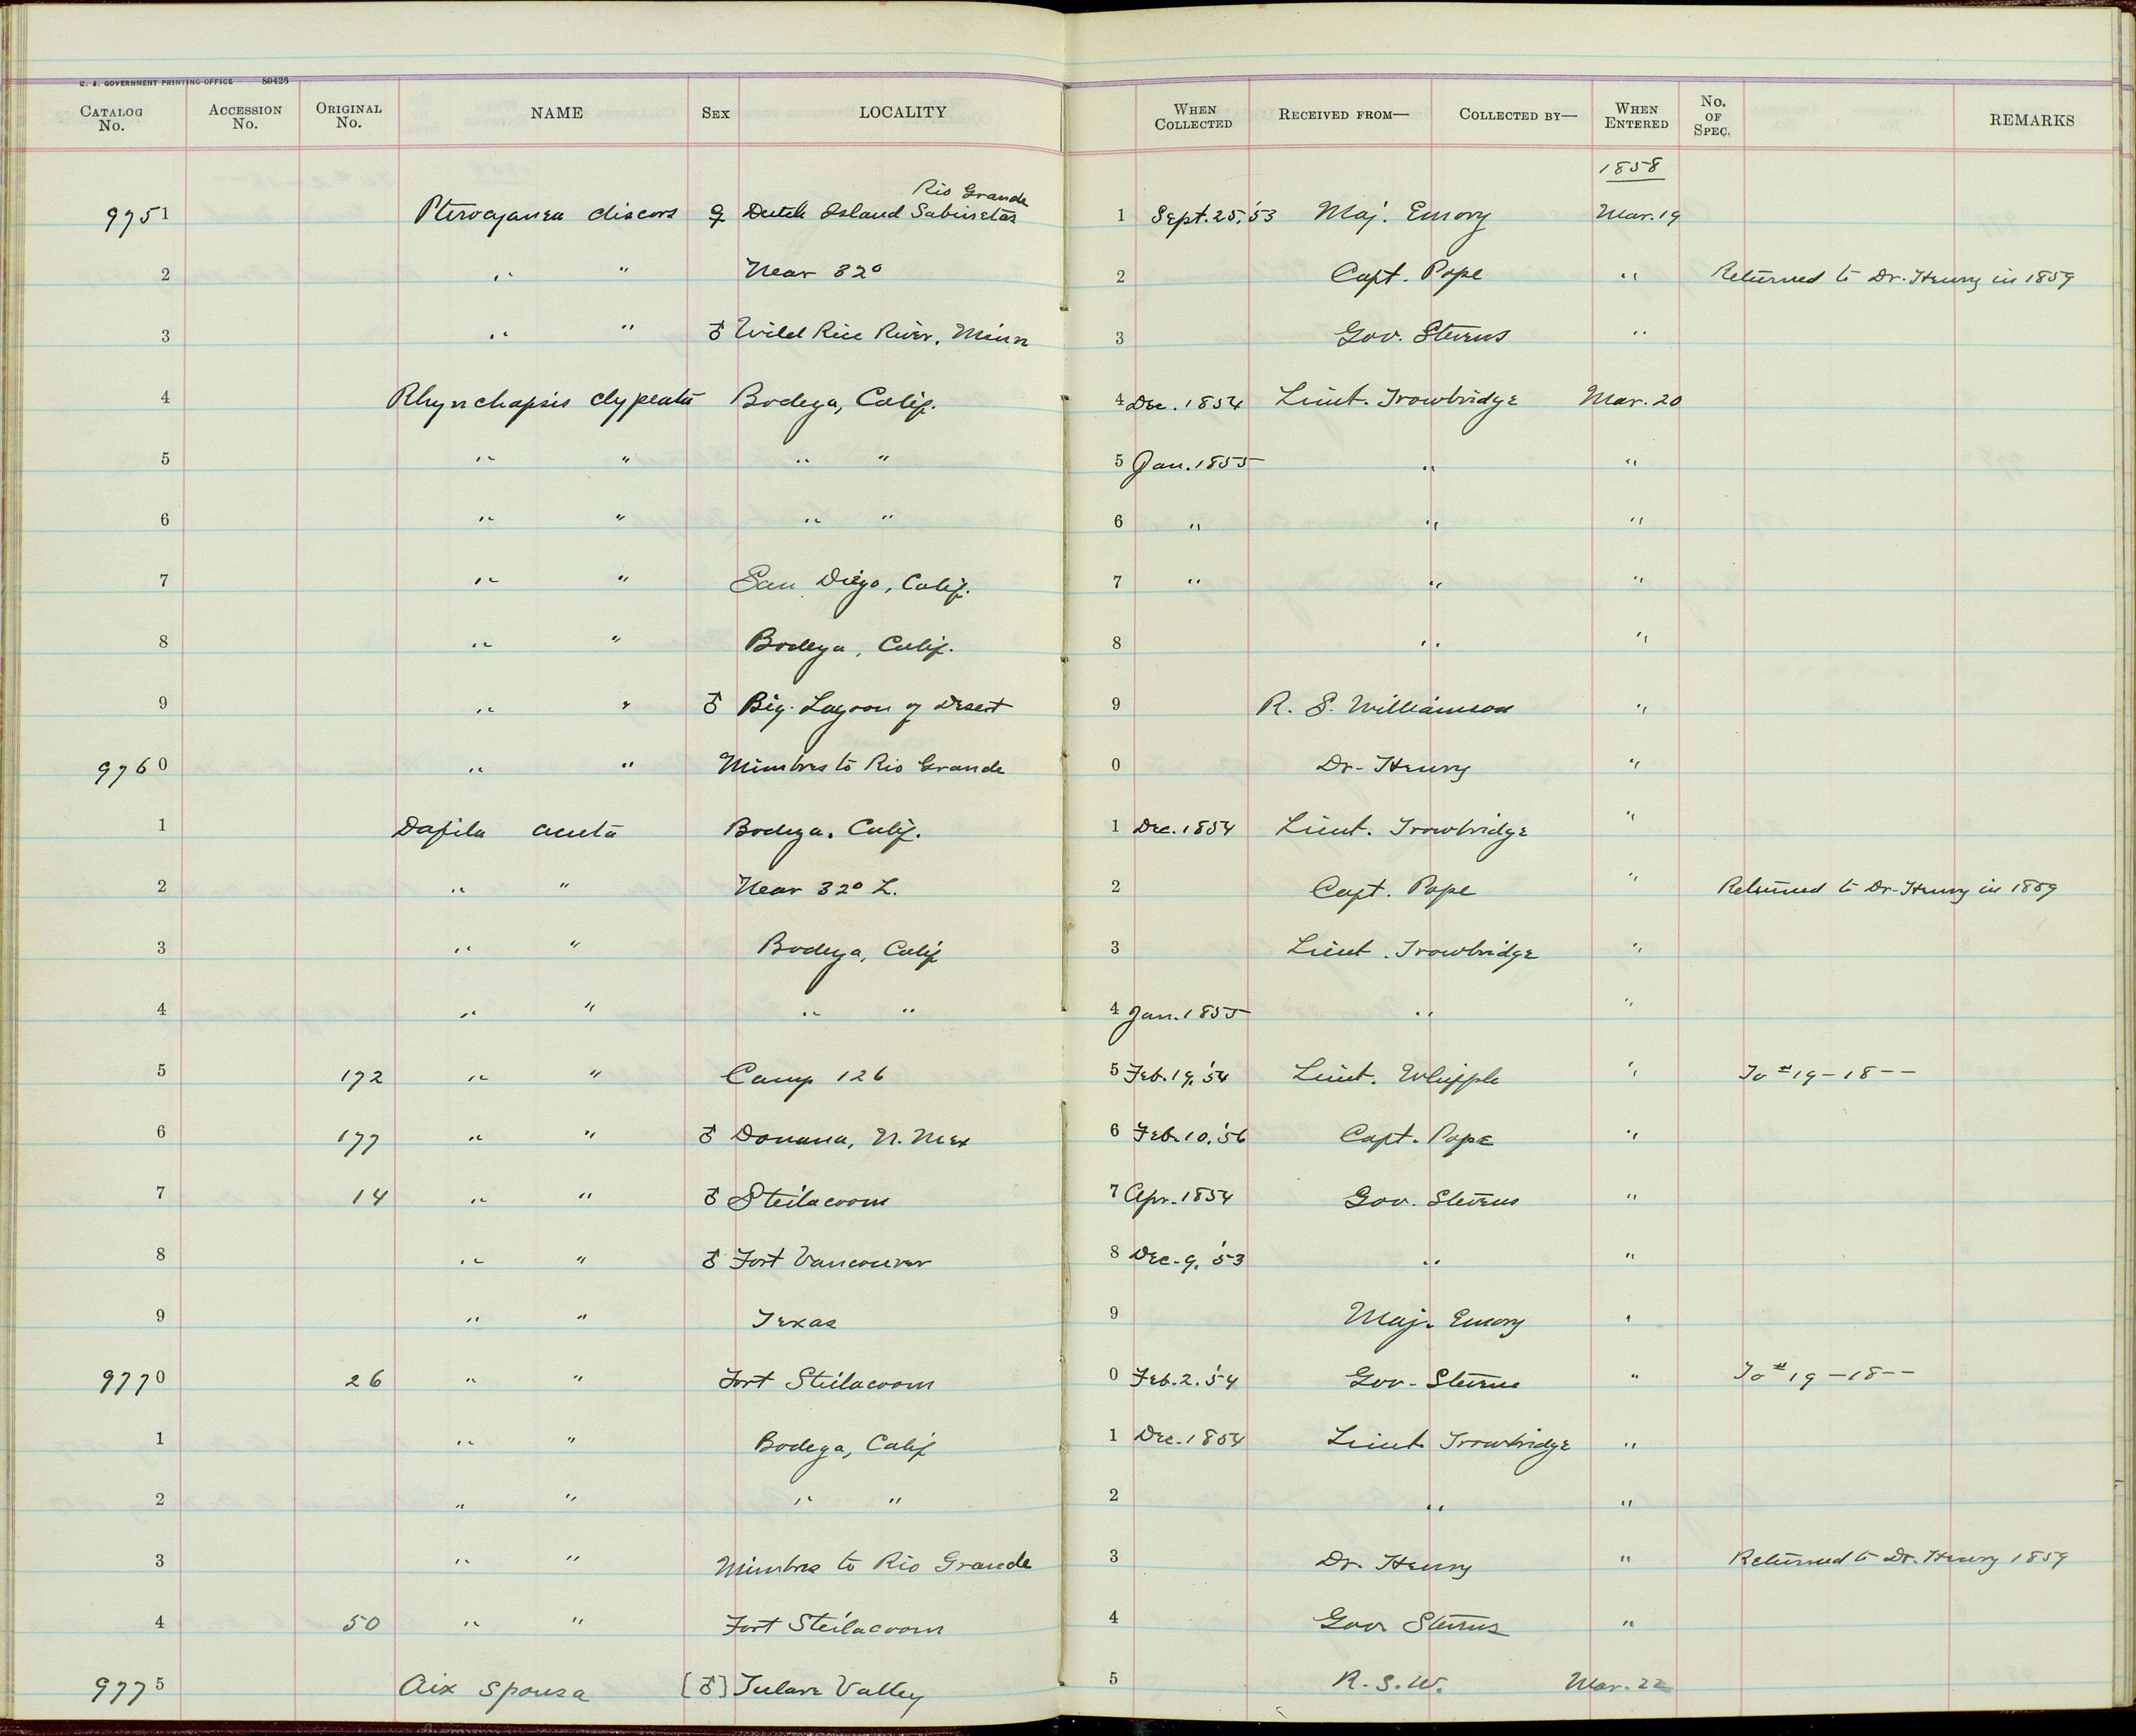 U. S. GOVERNMENT PRINTING OFFICE 80426
CATALOG No. ACCESSION No. ORIGINAL No. NAME SEX LOCALITY WHEN COLLECTED RECEIVED FROM— COLLECTED BY— WHEN ENTERED No. OF SPEC. REMARKS
1858
Rio Grande
9751 Pterocyanea discors ♀ Dutch Island Sabinetas 1 Sept. 25, '53 Maj. Emory Mar. 19
2 " " Near 32° 2 Capt. Pope " Returned to Dr. Henry in 1859
3 " " ♂ Wild Rice River, Minn 3 Gov. Stevens "
4 Rhynchapsis clypeata Bodega, Calif. 4 Dec. 1854 Lieut. Trowbridge Mar. 20
5 " " " " 5 Jan. 1855 " "
6 " " " " 6 " " "
7 " " San Diego, Calif. 7 " " "
8 " " Bodega, Calif. 8 " "
9 " " ♂ Big. Lagoon of Desert 9 R. S. Williamson "
9760 " " Mimbres to Rio Grande 0 Dr. Henry "
1 Dafila acuta Bodega, Calif. 1 Dec. 1854 Lieut. Trowbridge "
2 " " Near 32° L. 2 Capt. Pope " Returned to Dr. Henry in 1859
3 " " Bodega, Calif 3 Lieut. Trowbridge "
4 " " " " 4 Jan. 1855 " "
5 172 " " Camp 126 5 Feb. 19, '54 Lieut. Whipple " To #19-18--
6 177 " " ♂ Donana, N. Mex 6 Feb. 10, '56 Capt. Pope "
7 14 " " ♂ Steilacoom 7 Apr. 1854 Gov. Stevens "
8 " " ♂ Fort Vancouver 8 Dec. 9, '53 " "
9 " " Texas 9 Maj. Emory "
9770 26 " " Fort Steilacoom 0 Feb. 2. '54 Gov. Stevens " To #19-18--
1 " " Bodega, Calif 1 Dec. 1854 Lieut. Trowbridge "
2 " " " " 2 " "
3 " " Mimbres to Rio Grande 3 Dr. Henry " Returned to Dr. Henry 1859
4 50 " " Fort Steilacoom 4 Gov. Stevens "
9775 Aix sponsa [♂] Tulare Valley 5 R. S. W. Mar. 22